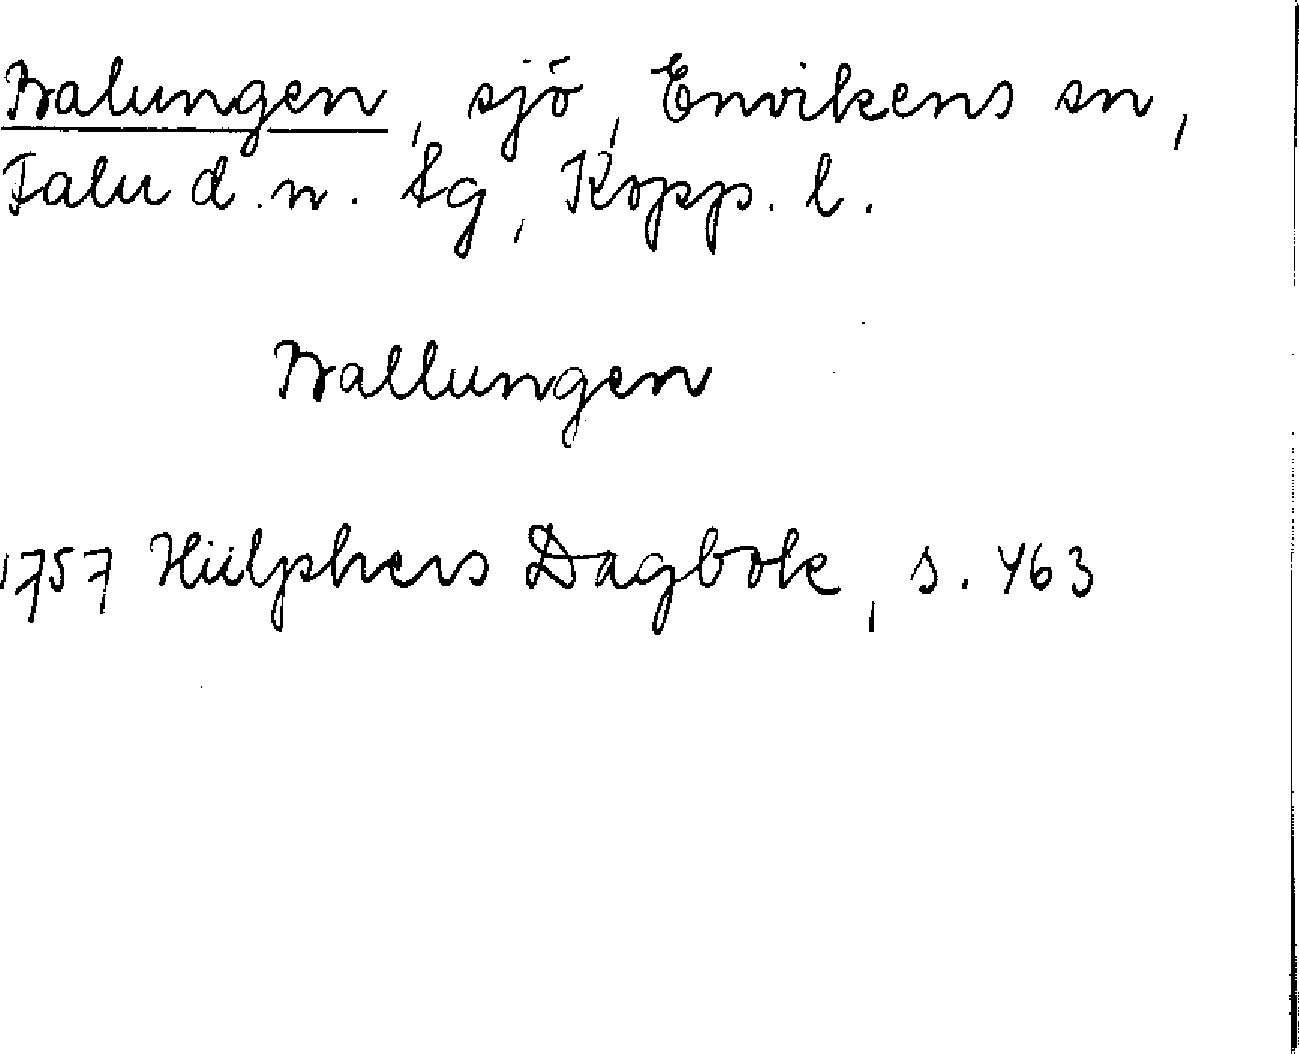 Balungen, sjö, Envikens sn,
Falu d. n. tg, Kopp. l.
Ballungen
1757 Hülphers Dagbok, s. 463